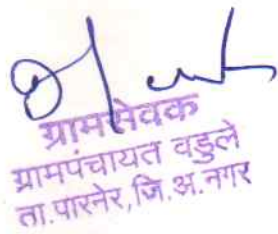 ग्रामसेवक
ग्रामपंचायत वडुले
ता.पारनेर, जि.अ.नगर